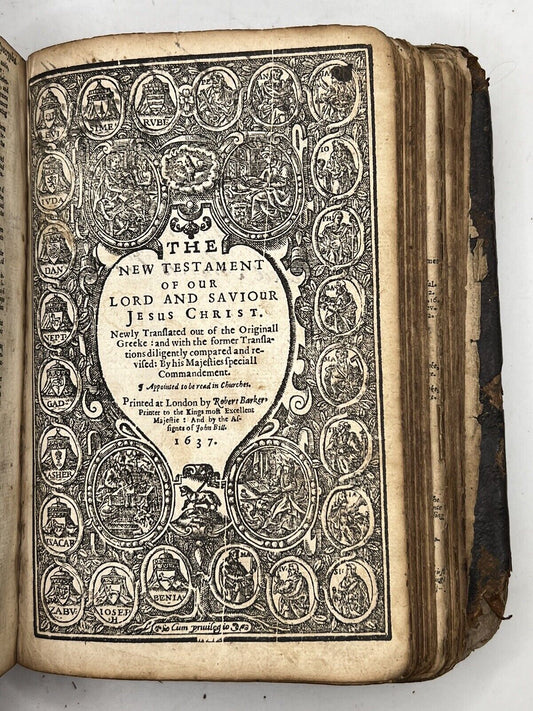 LEVI
SIME
RVBE
IVDA
DAN
NEPT
GAD
ASHER
ISACAR
ZABV
IOSEP
H
BENIA
THE
NEW TESTAMENT
OF OUR
LORD AND SAVIOUR
JESUS CHRIST.
Newly Tranſlated out of the Originall
Greeke: and with the former Tranſla-
tions diligently compared and re-
viſed: By his Majeſties ſpeciall
Commandement.
¶ Appointed to be read in Churches.
Printed at London by Robert Barker,
Printer to the Kings moſt Excellent
Majeſtie: And by the Aſ-
ſignes of John Bill.
1637.
IO
PH
MA
Cum privilegio